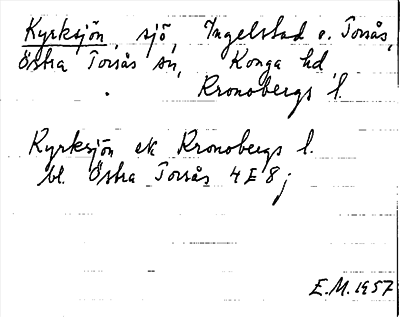 Kyrksjön, sjö, Ingelstad o. Torsås,
Östra Torsås sn, Konga hd,
Kronobergs l.
Kyrksjön ek Kronobergs l.
bl. Östra Torsås 4 E 8 j
E.M. 1957